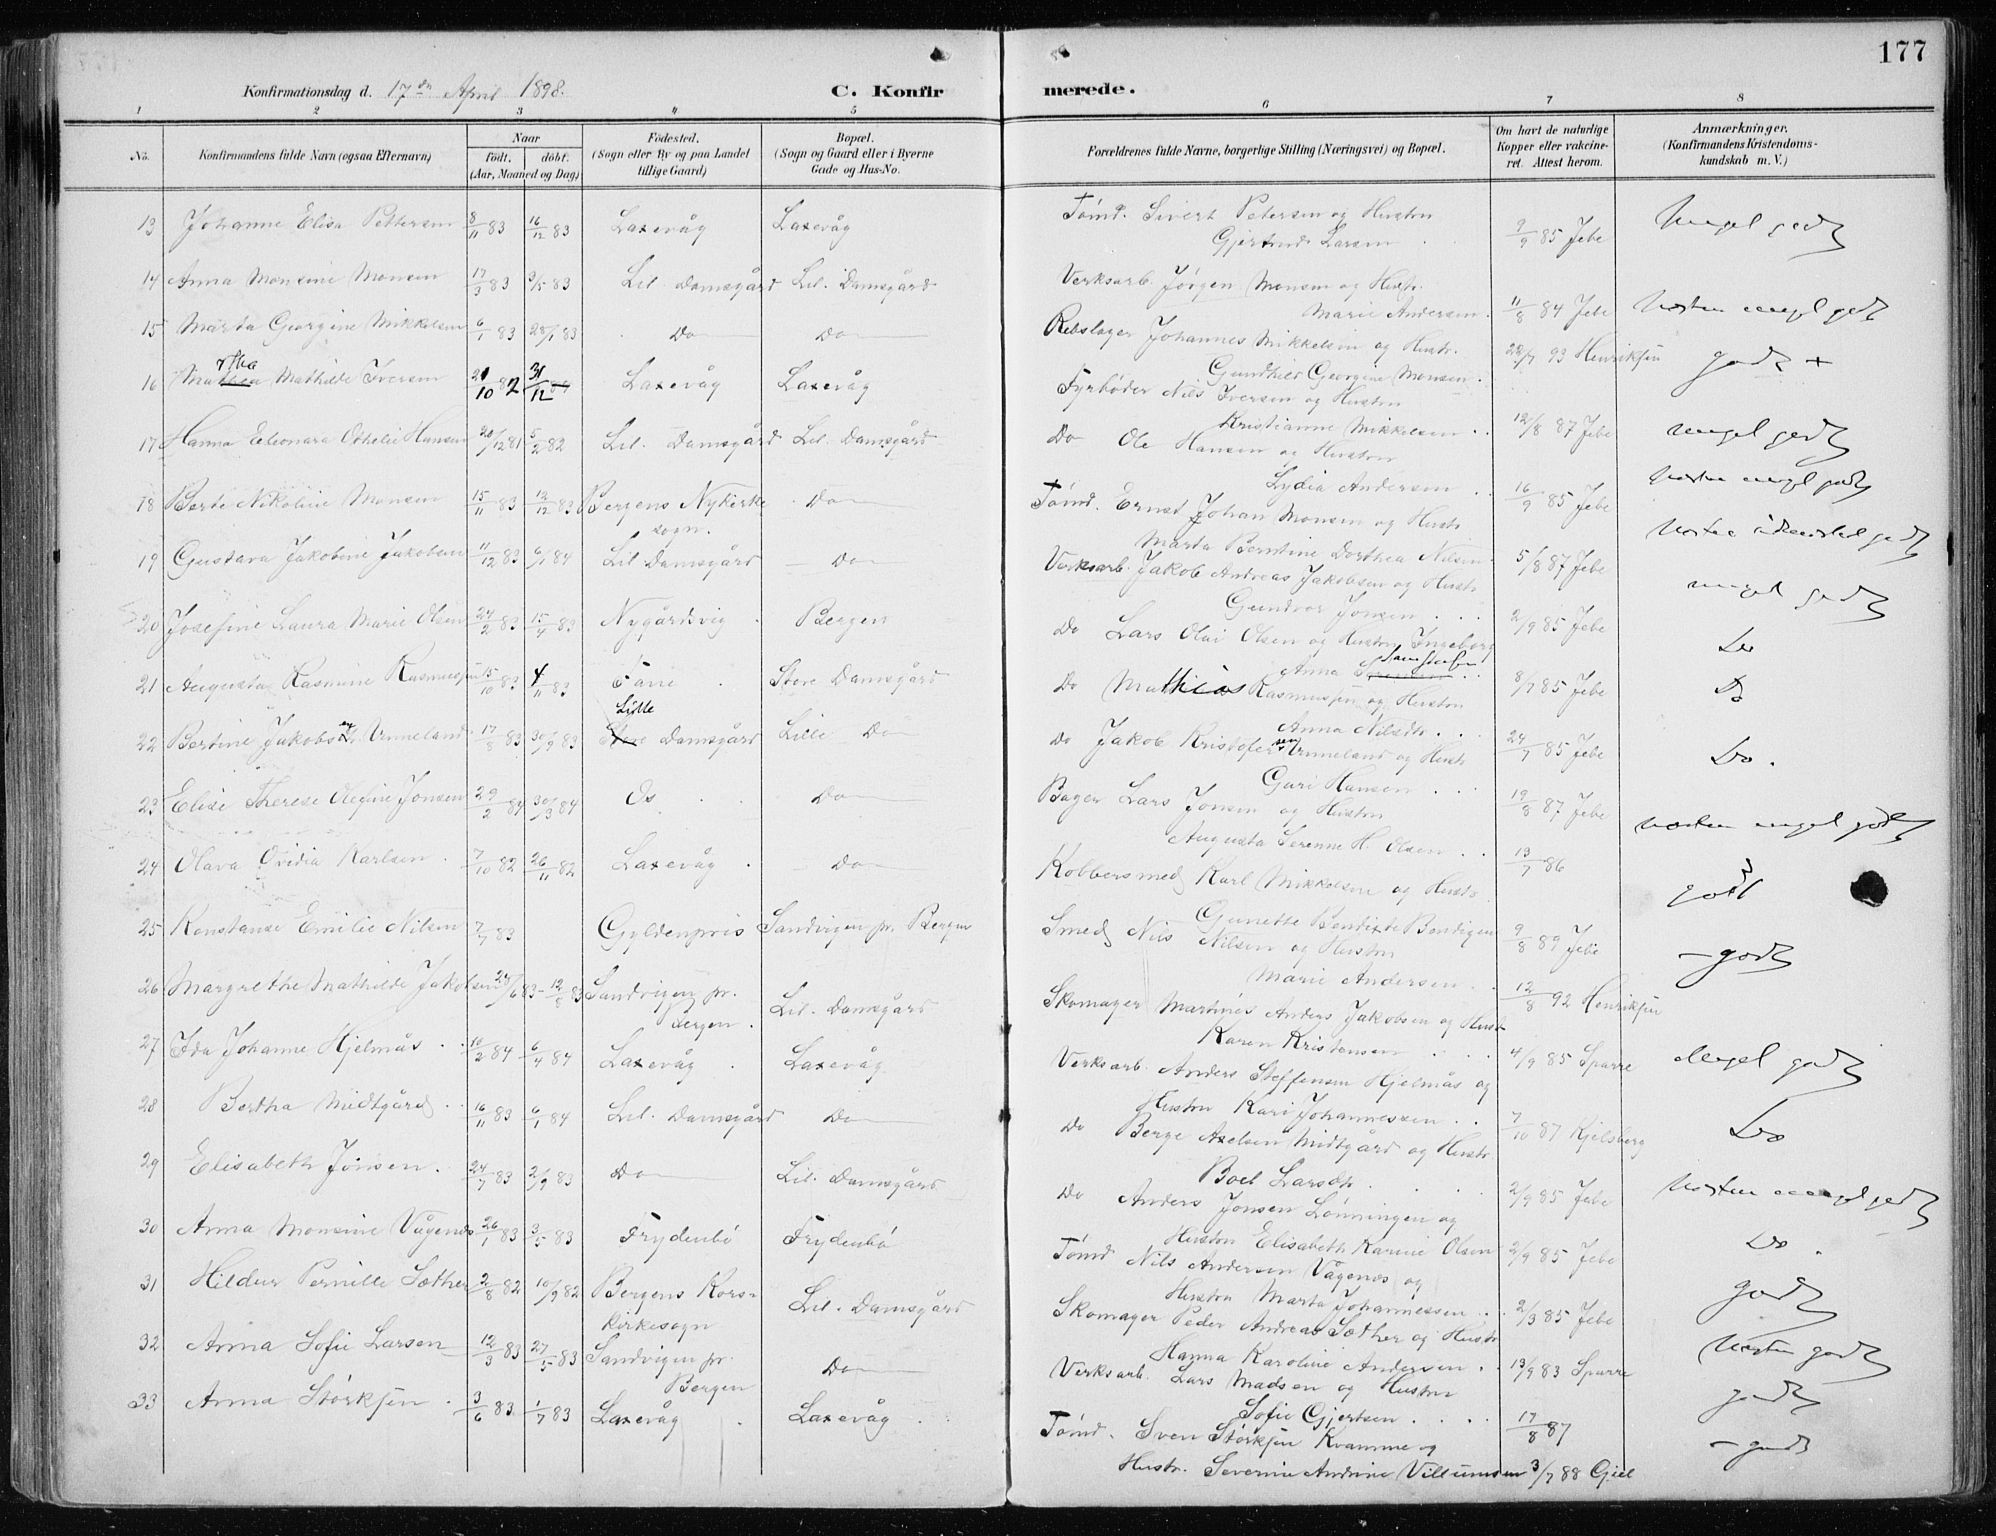 177
Konfirmationsdag d. 17de April 1898. C. Konfirmerede.
1 2 3 4 5 6 7 8
No. Konfirmandens fulde Navn (ogsaa Efternavn) Naar født. døbt. (Aar, Maaned og Dag) Fødested. (Sogn eller By og paa Landet tillige Gaard) Bopæl. (Sogn og Gaard eller i Byerne Gade og Hus-No. Forældrenes fulde Navne, borgerlige Stilling (Næringsvei) og Bopæl. Om havt de naturlige Kopper eller vakcineret. Attest herom. Anmærkninger. (Konfirmandens Kristendomskundskab m. V.)
13 Johanne Elisa Pettersen 8/11 83 16/12 83 Laxevåg Laxevåg Tømd. Sivert Petersen og Hustru
Gjertrude Larsen 9/9 85 Jebe Meget godt
14 Anna Monsine Monsen 17/3 83 3/5 83 Lil. Damsgård Lil. Damsgård Verksarb. Jørgen Monsen og Hustr.
Marie Andersen. 11/8 84 Jebe Næsten meget godt
15 Marta Georgine Mikkelsen 6/1 83 28/1 83 Do Do Rebslager Johannes Mikkelsen og Hustr.
Gundhild Georgine Monsen. 22/7 93 Henriksen godt +
16 Martha Mathilde Iversen 21/10 82 31/12 Laxevåg Laxevåg Fyrbøder Nils Iversen og Hustru
Kristianne Mikkelsen 12/8 87 Jebe meget godt
17 Hanna Eleonara Othelie Hansen 20/12 81 5/2 82 Lil. Damsgård Lil. Damsgård Do Ole Hansen og Hustru
Lydia Andersen 16/9 85 Jebe Næsten meget godt
18 Berte Nikoline Monsen 15/11 83 12/12 83 Bergens Nykirke sogn. Do Tømd. Ernst Johan Monsen og Hustr
Marta Berntine Dorthea Nilsen 5/8 87 Jebe Næsten udmærket godt
19 Gustava Jakobine Jakobsen 11/12 83 6/1 84 Lil Damsgård Do Verksarb. Jakob Andreas Jakobsen og Hustr
Gundvor Jonsen 2/9 85 Jebe meget godt
20 Josefine Laura Marie Olsen 24/2 83 15/4 83 Nygårdsvig Bergen Do Lars Olai Olsen og Hustru Ingeborg
Anna 8/7 85 Jebe Do
21 Augusta Rasmine Rasmussen 15/10 83 4/11 83 Fane Store Damsgård Do Mathias Rasmussen og Hustru
Anna Nilsdtr. 24/7 85 Jebe Do
22 Bertine Jakobsen Urmeland 17/8 83 30/9 83 Lille Damsgård Lille Do Do Jakob Kristofersen Urmeland og Hustr
Guri Hansen 19/8 87 Jebe Do.
23 Elise Therese Olefine Jonsen 29/2 84 30/3 84 Os Do Bager Lars Jonsen og Hustru
Augusta Serenne H. Olsen 13/7 86 Næsten meget godt
24 Olava Ovidia Karlsen 7/10 82 26/11 82 Laxevåg Do Kobbersmed Karl Mikkelsen og Hustr.
Gunette Bendixte Bendigen 9/8 89 Jebe godt
25 Konstanse Emilie Nilsen 7/7 83 Gyldenpris Sandvigen pr. Bergen Smed Nils Nilsen og Hustru
Marie Andersen 12/8 92 Henriksen - godt
26 Margrethe Mathilde Jakobsen 24/6 83 - 12/8 83 Sandvigen pr. Bergen. Lil. Damsgård Skomager Martines Anders Jakobsen og Hustr
Karen Kristensen 4/9 85 Sparre Meget godt
27 Ida Johanne Hjelmås 10/2 84 6/4 84 Laxevåg Laxevåg Verksarb. Anders Steffensen Hjelmås og
Hustru Kari Johannessen 7/10 87 Kjelsberg Do
28 Bertha Midtgård 16/11 83 6/1 84 Lil. Damsgård Do Do Berge Axelsen Midtgård og Hustr
Boel Larsdtr. 2/9 85 Jebe Næsten meget godt
29 Elisabeth Jonsen. 24/7 83 2/9 83 Do Lil. Damsgård Do Anders Jonsen Lønningen og
Hustru Elisabeth Karine Olsen 2/9 85 Jebe Do.
30 Anna Monsine Vågenæs 26/1 83 3/5 83 Frydenbø Frydenbø Tømd Nils Andersen Vågenæs og
Hustru Marta Johannessen 2/3 85 Jebe godt
31 Hildur Pernille Sæther 2/8 82 10/9 82 Bergens Kors-kirkesogn Lil. Damsgård Skomager Peder Andreas Sæther og Hustr
Hanna Karoline Andersen 13/9 83 Sparre Næsten godt
32 Anna Sofie Larsen 12/3 83 27/5 83 Sandvigen pr. Bergen Do Verksarb. Lars Madsen og Hustru
Sofie Gjertsen 17/8 87 godt
33 Anna Størksen 3/6 83 1/7 83 Laxevåg Laxevåg Tømd. Sven Størksen Kvamme og
Hustr. Severine Andrine Villumsen 3/7 88 Gjel - godt